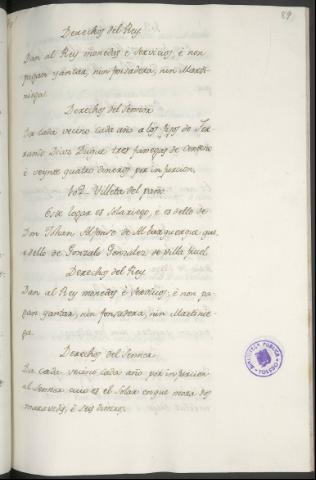 89
Derechos del Rey
Dan al Rey monedas è servicios, è non
pagan yantar, nin fonsadera, nin Martiniega.
Derechos del Sennor
Da cada vecino cada año a los fijos de Ferrando Diaz Duque tres fanegas de
è veynte quatro dineros por infurcion.
Villela del
Este logar es Solariego, è es dello de
Don Johan Alfonso de Alburquerque que,
è dello de Gonzalo Gonzalez de Villa
Derechos del Rey
Dan al Rey monedas è servicios, è non pagan yantar, nin fonsadera, nin Martiniega.
Derechos del Sennor
Da cada vecino cada año por infurcion
al Sennor cuio es el Solar en que mora dos
maravedis, è seis dineros.
BIBLIOTECA PUBLICA
TOLEDO